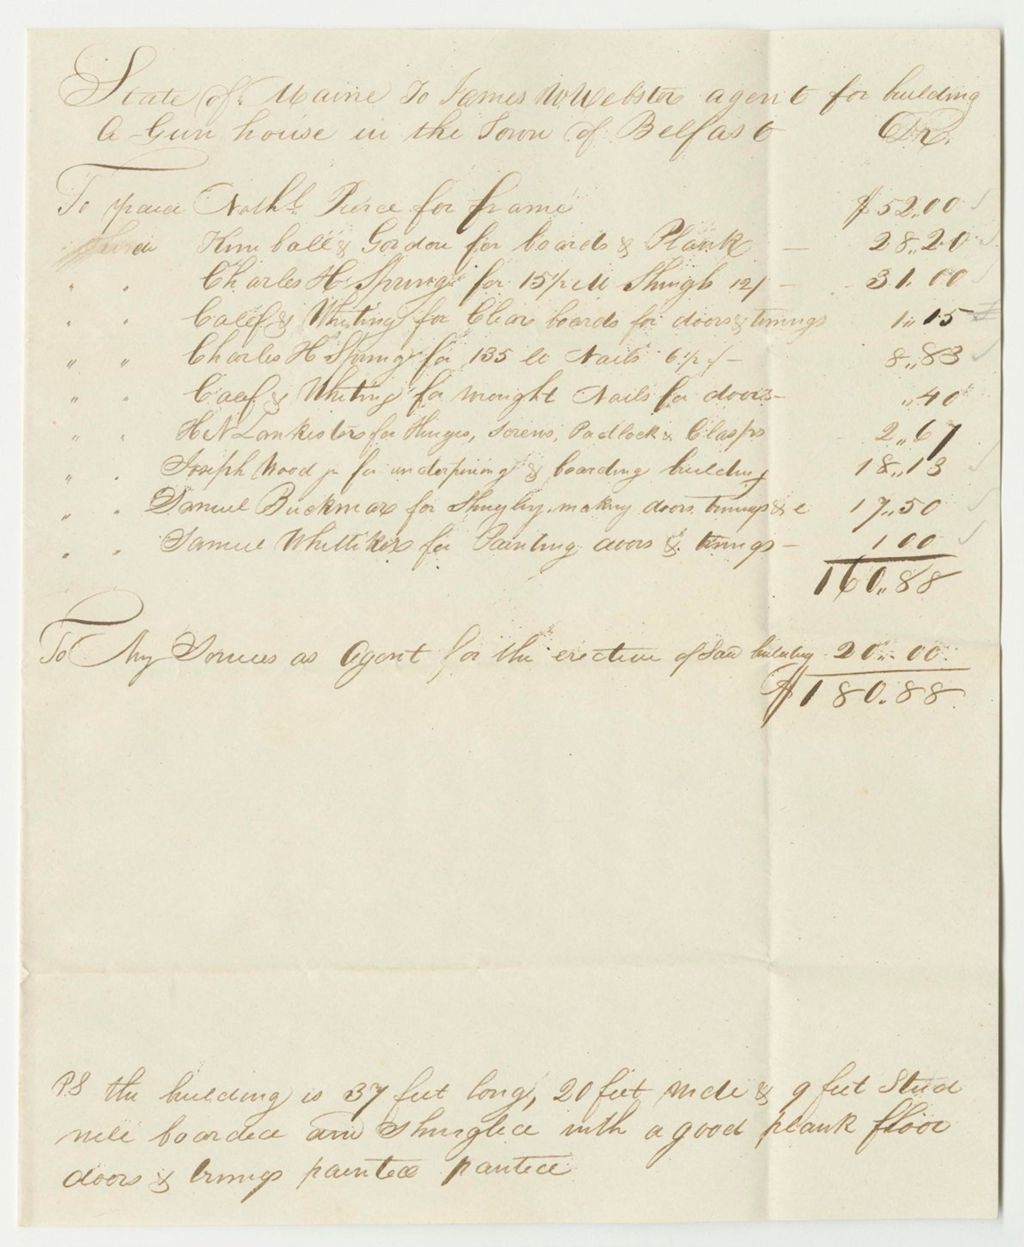 State of Maine To James W Webster agent for building
A Gun house in the Town of Belfast Dr.
To paid Nathl. Pierce for frame $52,00
Kimball & Gordon for boards & Plank - 28,,20
" " Charles H Spring for 15 1/2 M Shingls 12/ - 31.00
" " Calef & Whiting for Clear boards for doors & trimings 1,,15
" " Charles H Spring for 135 lb Nails 6 1/2 /- 8,,83
" " Calef & Whiting for wrought Nails for doors- ,,40
" " H N Lankister for Hinges, Screws, Padlock & Clasps 2,,67
" " Joseph Wood jr for underpining & boarding building 18,,13
" " Samuel Buckmar for Shingling, making doors, trimings & c 17,,50
" " Samuel Whittiker for Painting doors & trimings - 1 00
160,,88
To My Services as Agent for the erection of Said building 20,,00
$180.88
PS the building is 37 feet long, 20 feet wide & 9 feet Stud
well boarded and Shingled with a good plank floor
doors & trimings painted painted